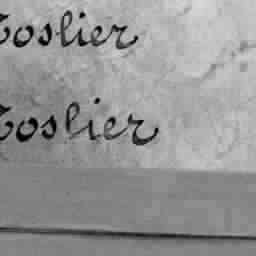 Toslier
Toslier